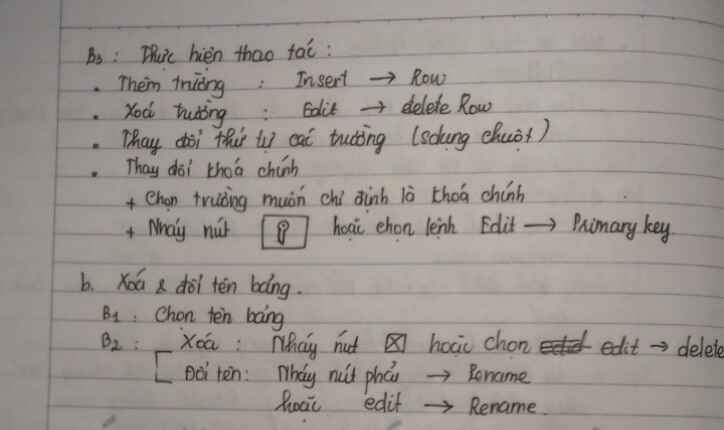 B3 : Thực hiện thao tác :
• Thêm trường : Insert → Row
• Xoá trường : Edit → delete Row
• Thay đổi thứ tự các trường (sdụng chuột)
• Thay đổi khoá chính
+ Chọn trường muốn chỉ định là khoá chính
+ Nháy nút hoặc chọn lệnh Edit → Primary key.
b. Xoá & đổi tên bảng.
B1 : Chọn tên bảng
B2 : Xoá : Nháy nút ☒ hoặc chọn edit → delete
Đổi tên : Nháy nút phải → Rename
hoặc edit → Rename.